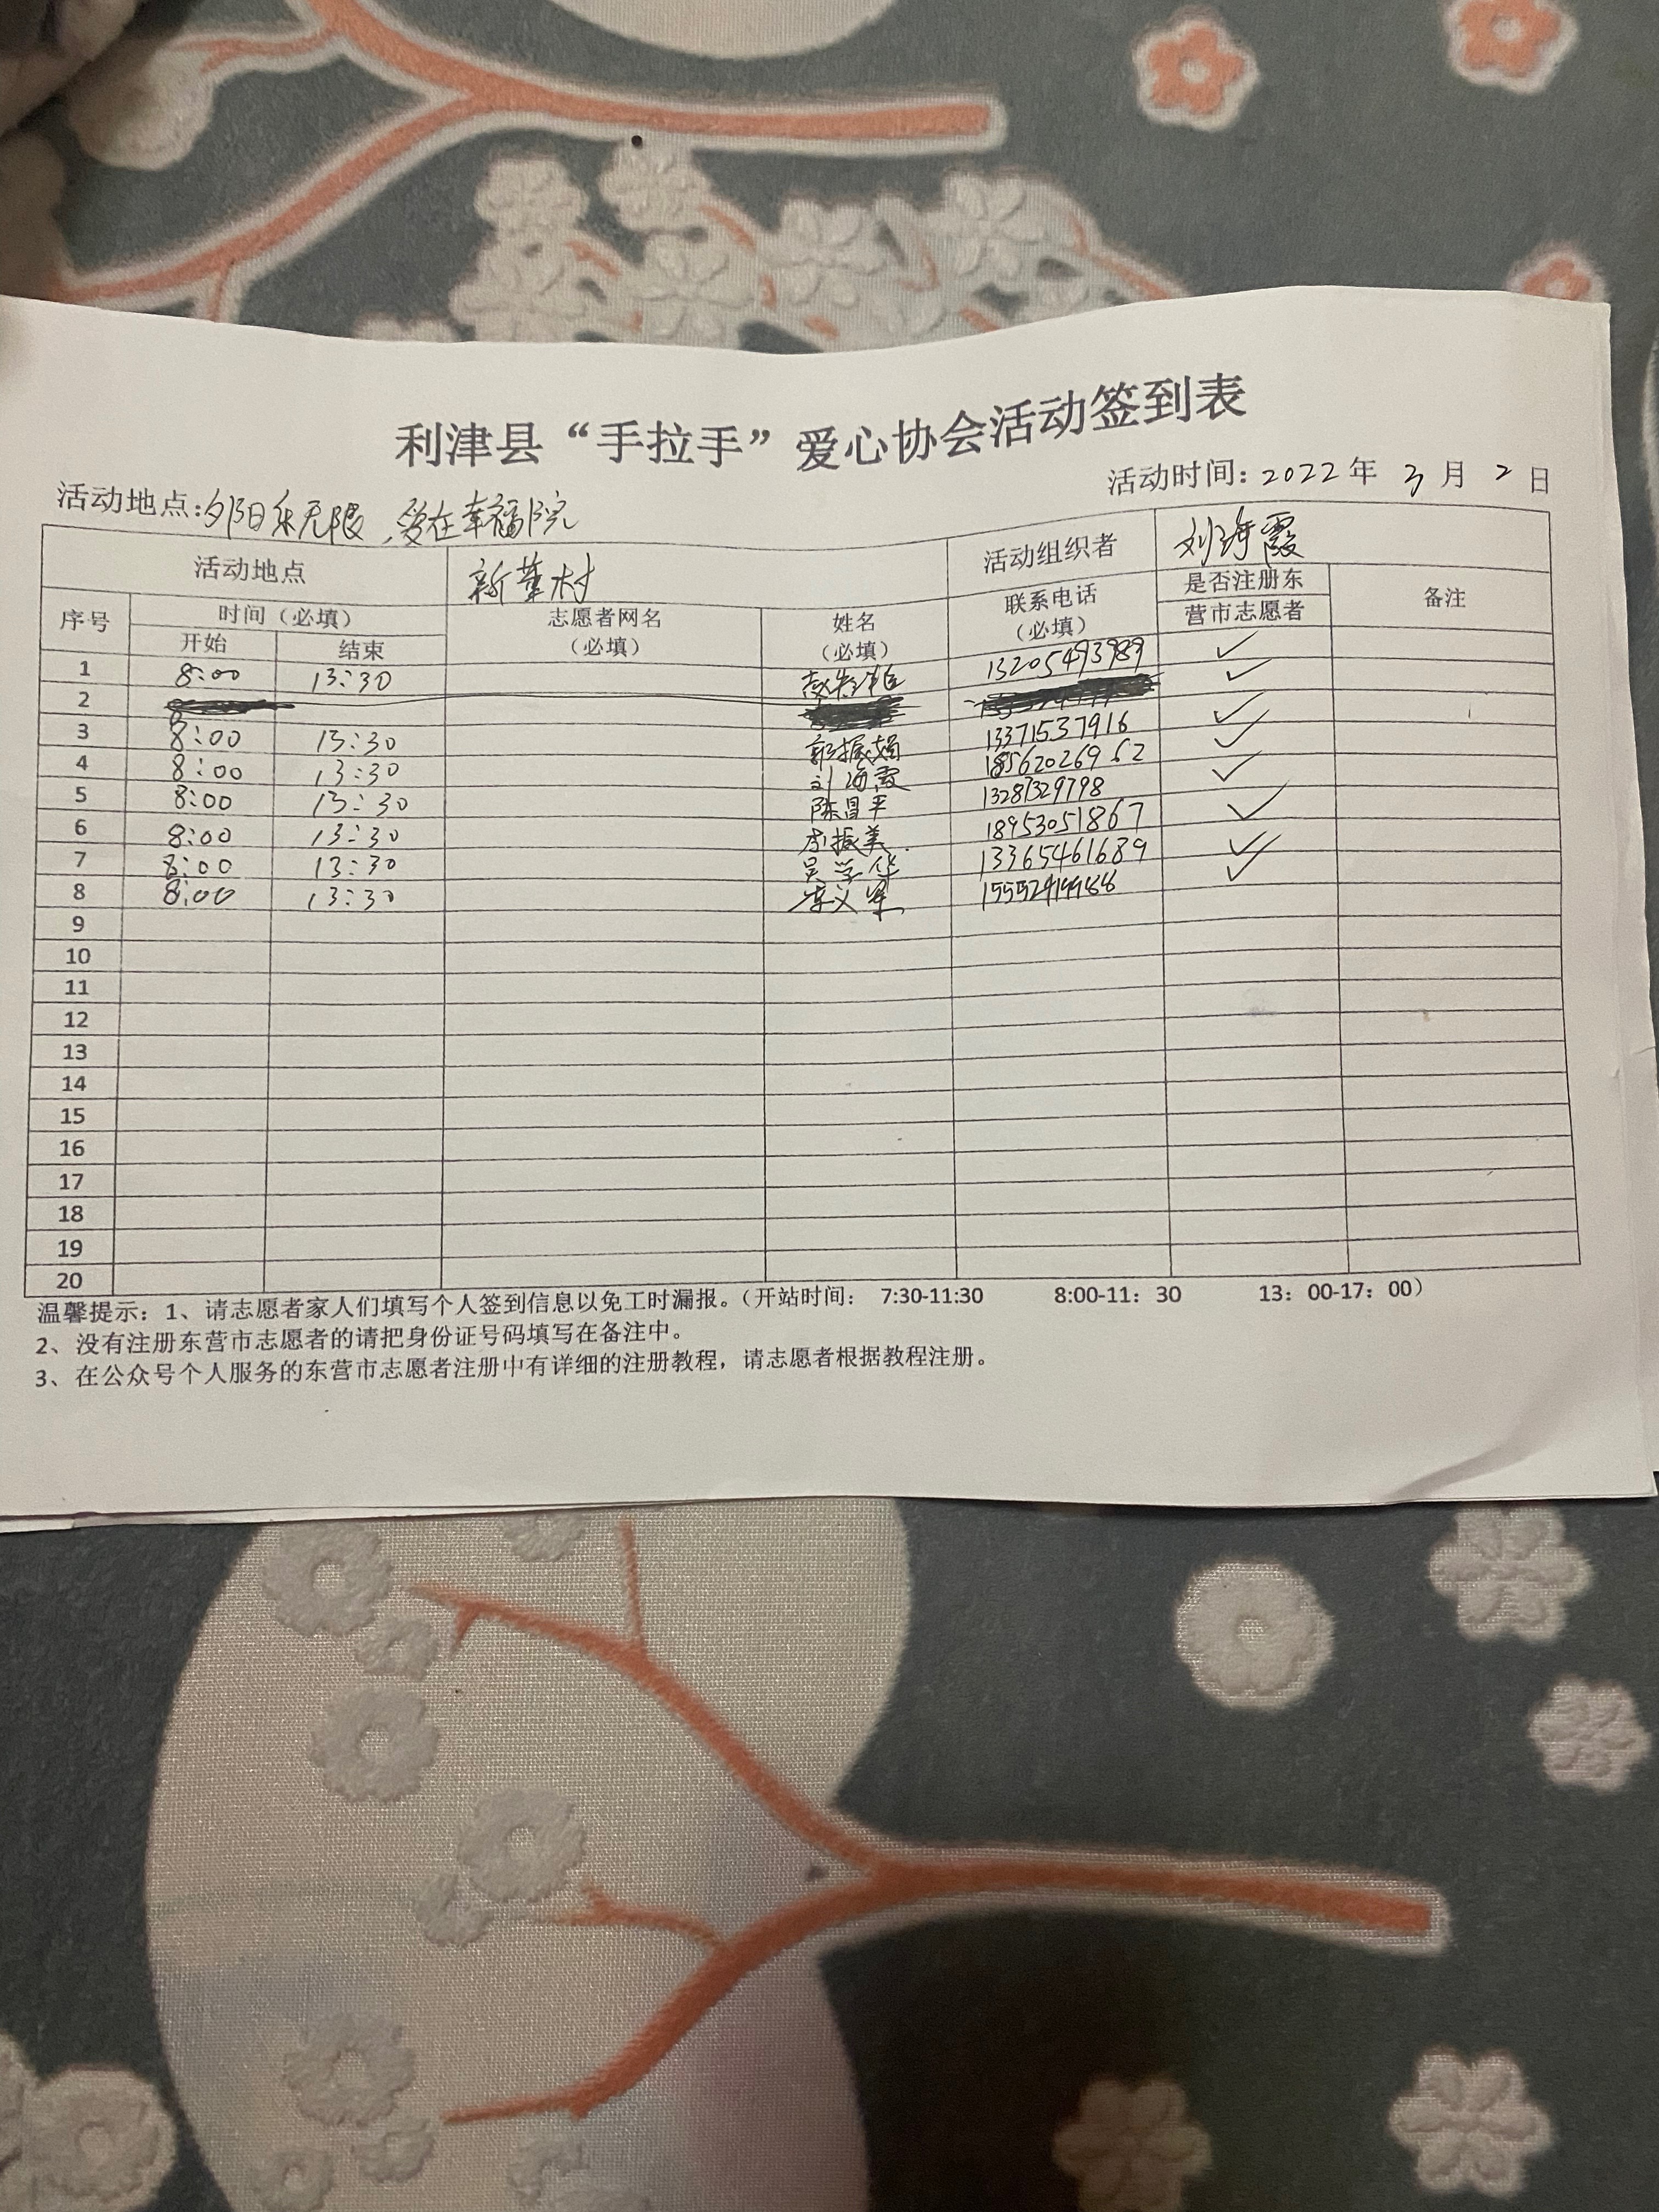 利津县“手拉手”爱心协会活动签到表
活动地点:夕阳乐无限,爱在幸福院 活动时间: 2022 年 3 月 2 日
活动地点 新华村 活动组织者 刘海霞
序号 时间（必填） 志愿者网名 姓名 联系电话 是否注册东 备注
开始 结束 （必填） （必填） （必填） 营市志愿者
1 8:00 13:30 13205493989 ✓
2 ✓
3 8:00 13:30 郭振娟 13371537916 ✓
4 8:00 13:30 刘海霞 18562026962 ✓
5 8:00 13:30 陈昌平 13281329798 ✓
6 8:00 13:30 李振美 18953051867 ✓
7 8:00 13:30 吴学华 13365461689 ✓
8 8:00 13:30 ✓
9
10
11
12
13
14
15
16
17
18
19
20
温馨提示：1、请志愿者家人们填写个人签到信息以免工时漏报。（开站时间： 7:30-11:30 8:00-11：30 13：00-17：00）
2、没有注册东营市志愿者的请把身份证号码填写在备注中。
3、在公众号个人服务的东营市志愿者注册中有详细的注册教程，请志愿者根据教程注册。